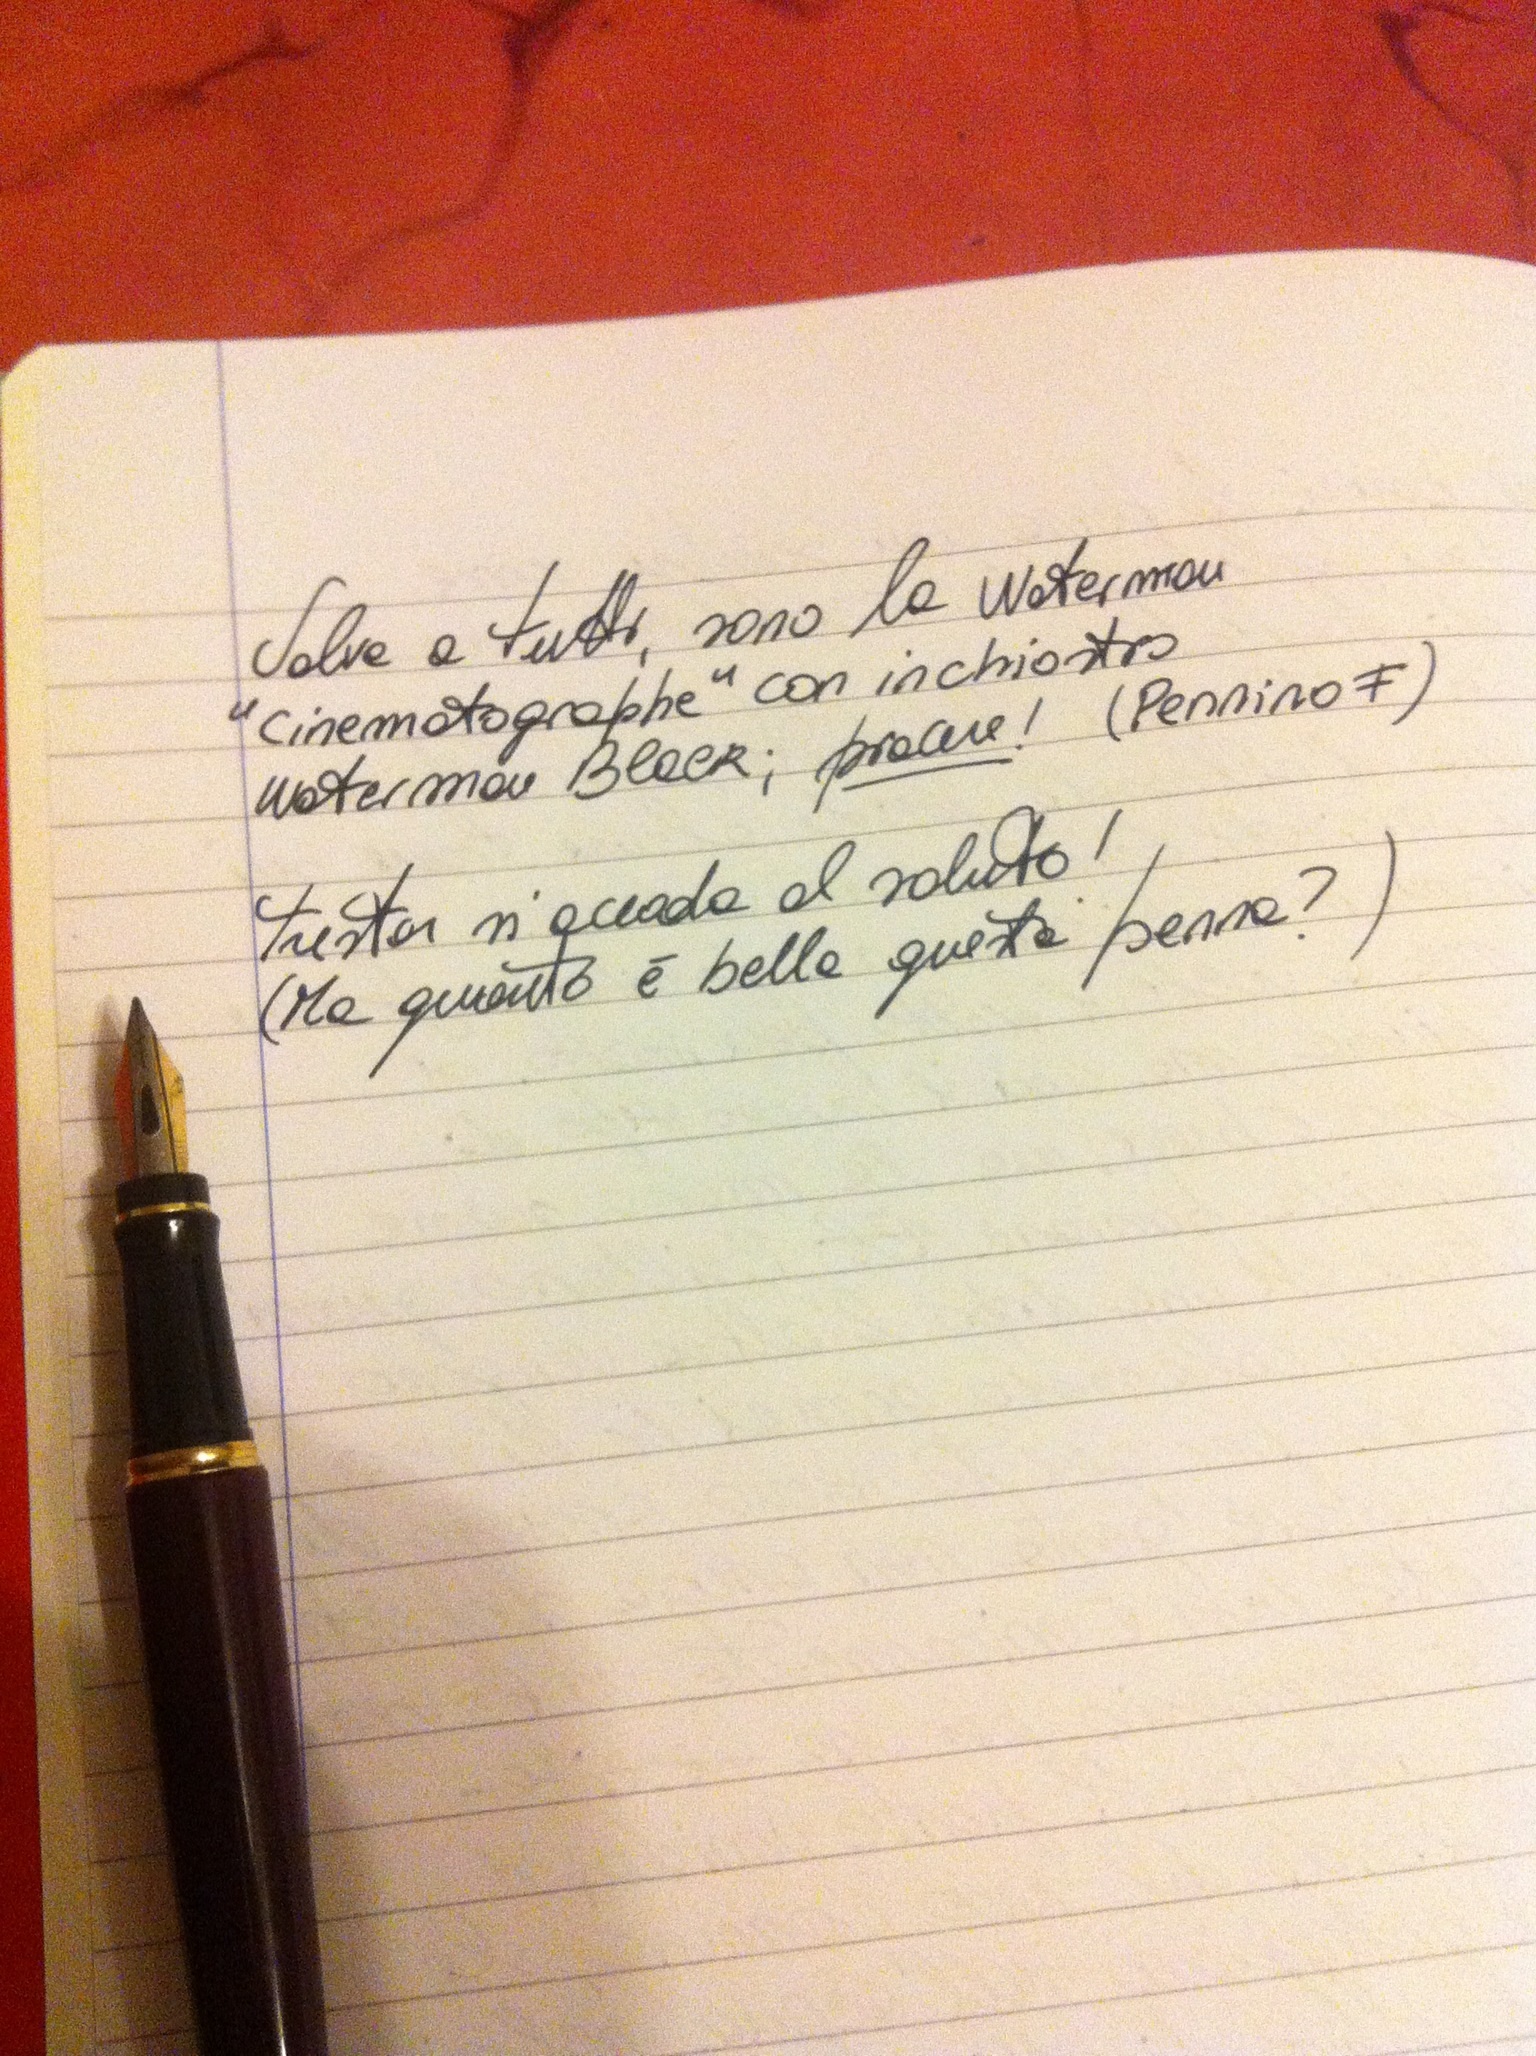 Salve a tutti, sono la Waterman
"Cinematographe" con inchiostro
Waterman Black; piacere! (Pennino F)
Tristan si accoda al saluto!
(Ma quanto è bella questa penna?)